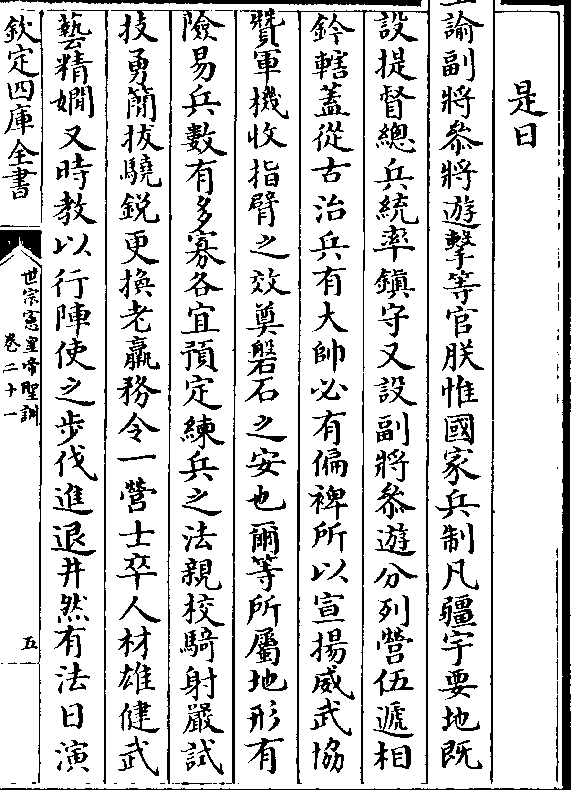 是日
諭副將叅將遊擊等官朕惟國家兵制凡疆宇要地既
設提督總兵統率鎮守又設副將叅遊分列營伍遞相
鈐轄蓋從古治兵有大帥必有偏裨所以宣揚威武協
贊軍機收指臂之效奠磐石之安也爾等所屬地形有
險易兵數有多寡各宜預定練兵之法親校騎射嚴試
技勇簡拔驍鋭更換老羸務令一營士卒人材雄健武
藝精嫺又時教以行陣使之步伐進退井然有法日演
欽定四庫全書
世宗憲皇帝聖訓
卷二十一
五